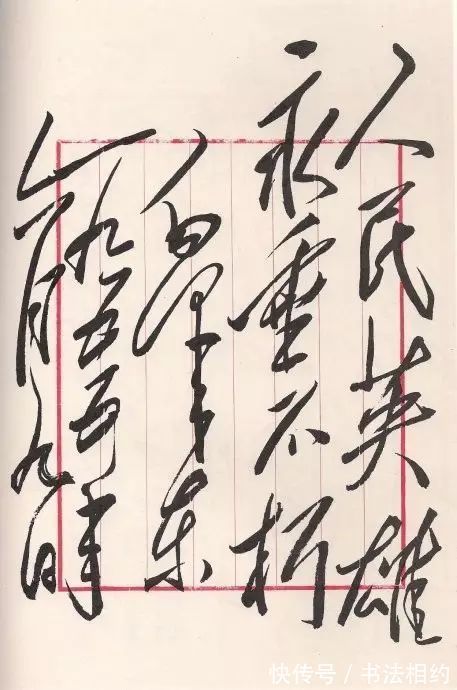 人民英雄
永垂不朽
毛泽东
一九五五年
六月九日
快传号 / 书法相约